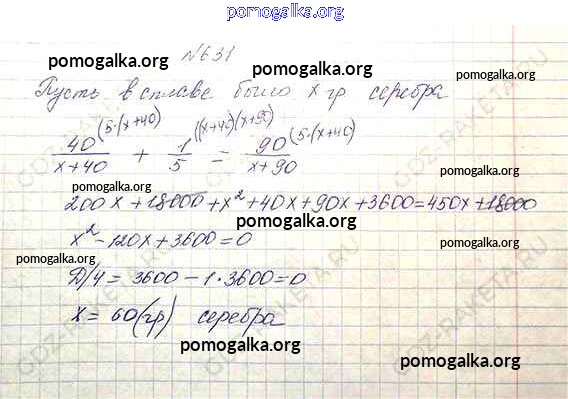 pomogalka.org
№631
pomogalka.org pomogalka.org
Пусть в сплаве было x гр серебра
40/(x+40) (5·(x+40) + 1/5 ((x+40)(x+90) = 90/(x+90) (5·(x+40)
pomogalka.org pomogalka.org
200x + 18000 + x² + 40x + 90x + 3600 = 450x + 18000
pomogalka.org
x² - 120x + 3600 = 0
Д/4 = 3600 - 1·3600 = 0
pomogalka.org pomogalka.org
x = 60 (гр) серебра
pomogalka.org pomogalka.org
GDZ-RAKETA.RU